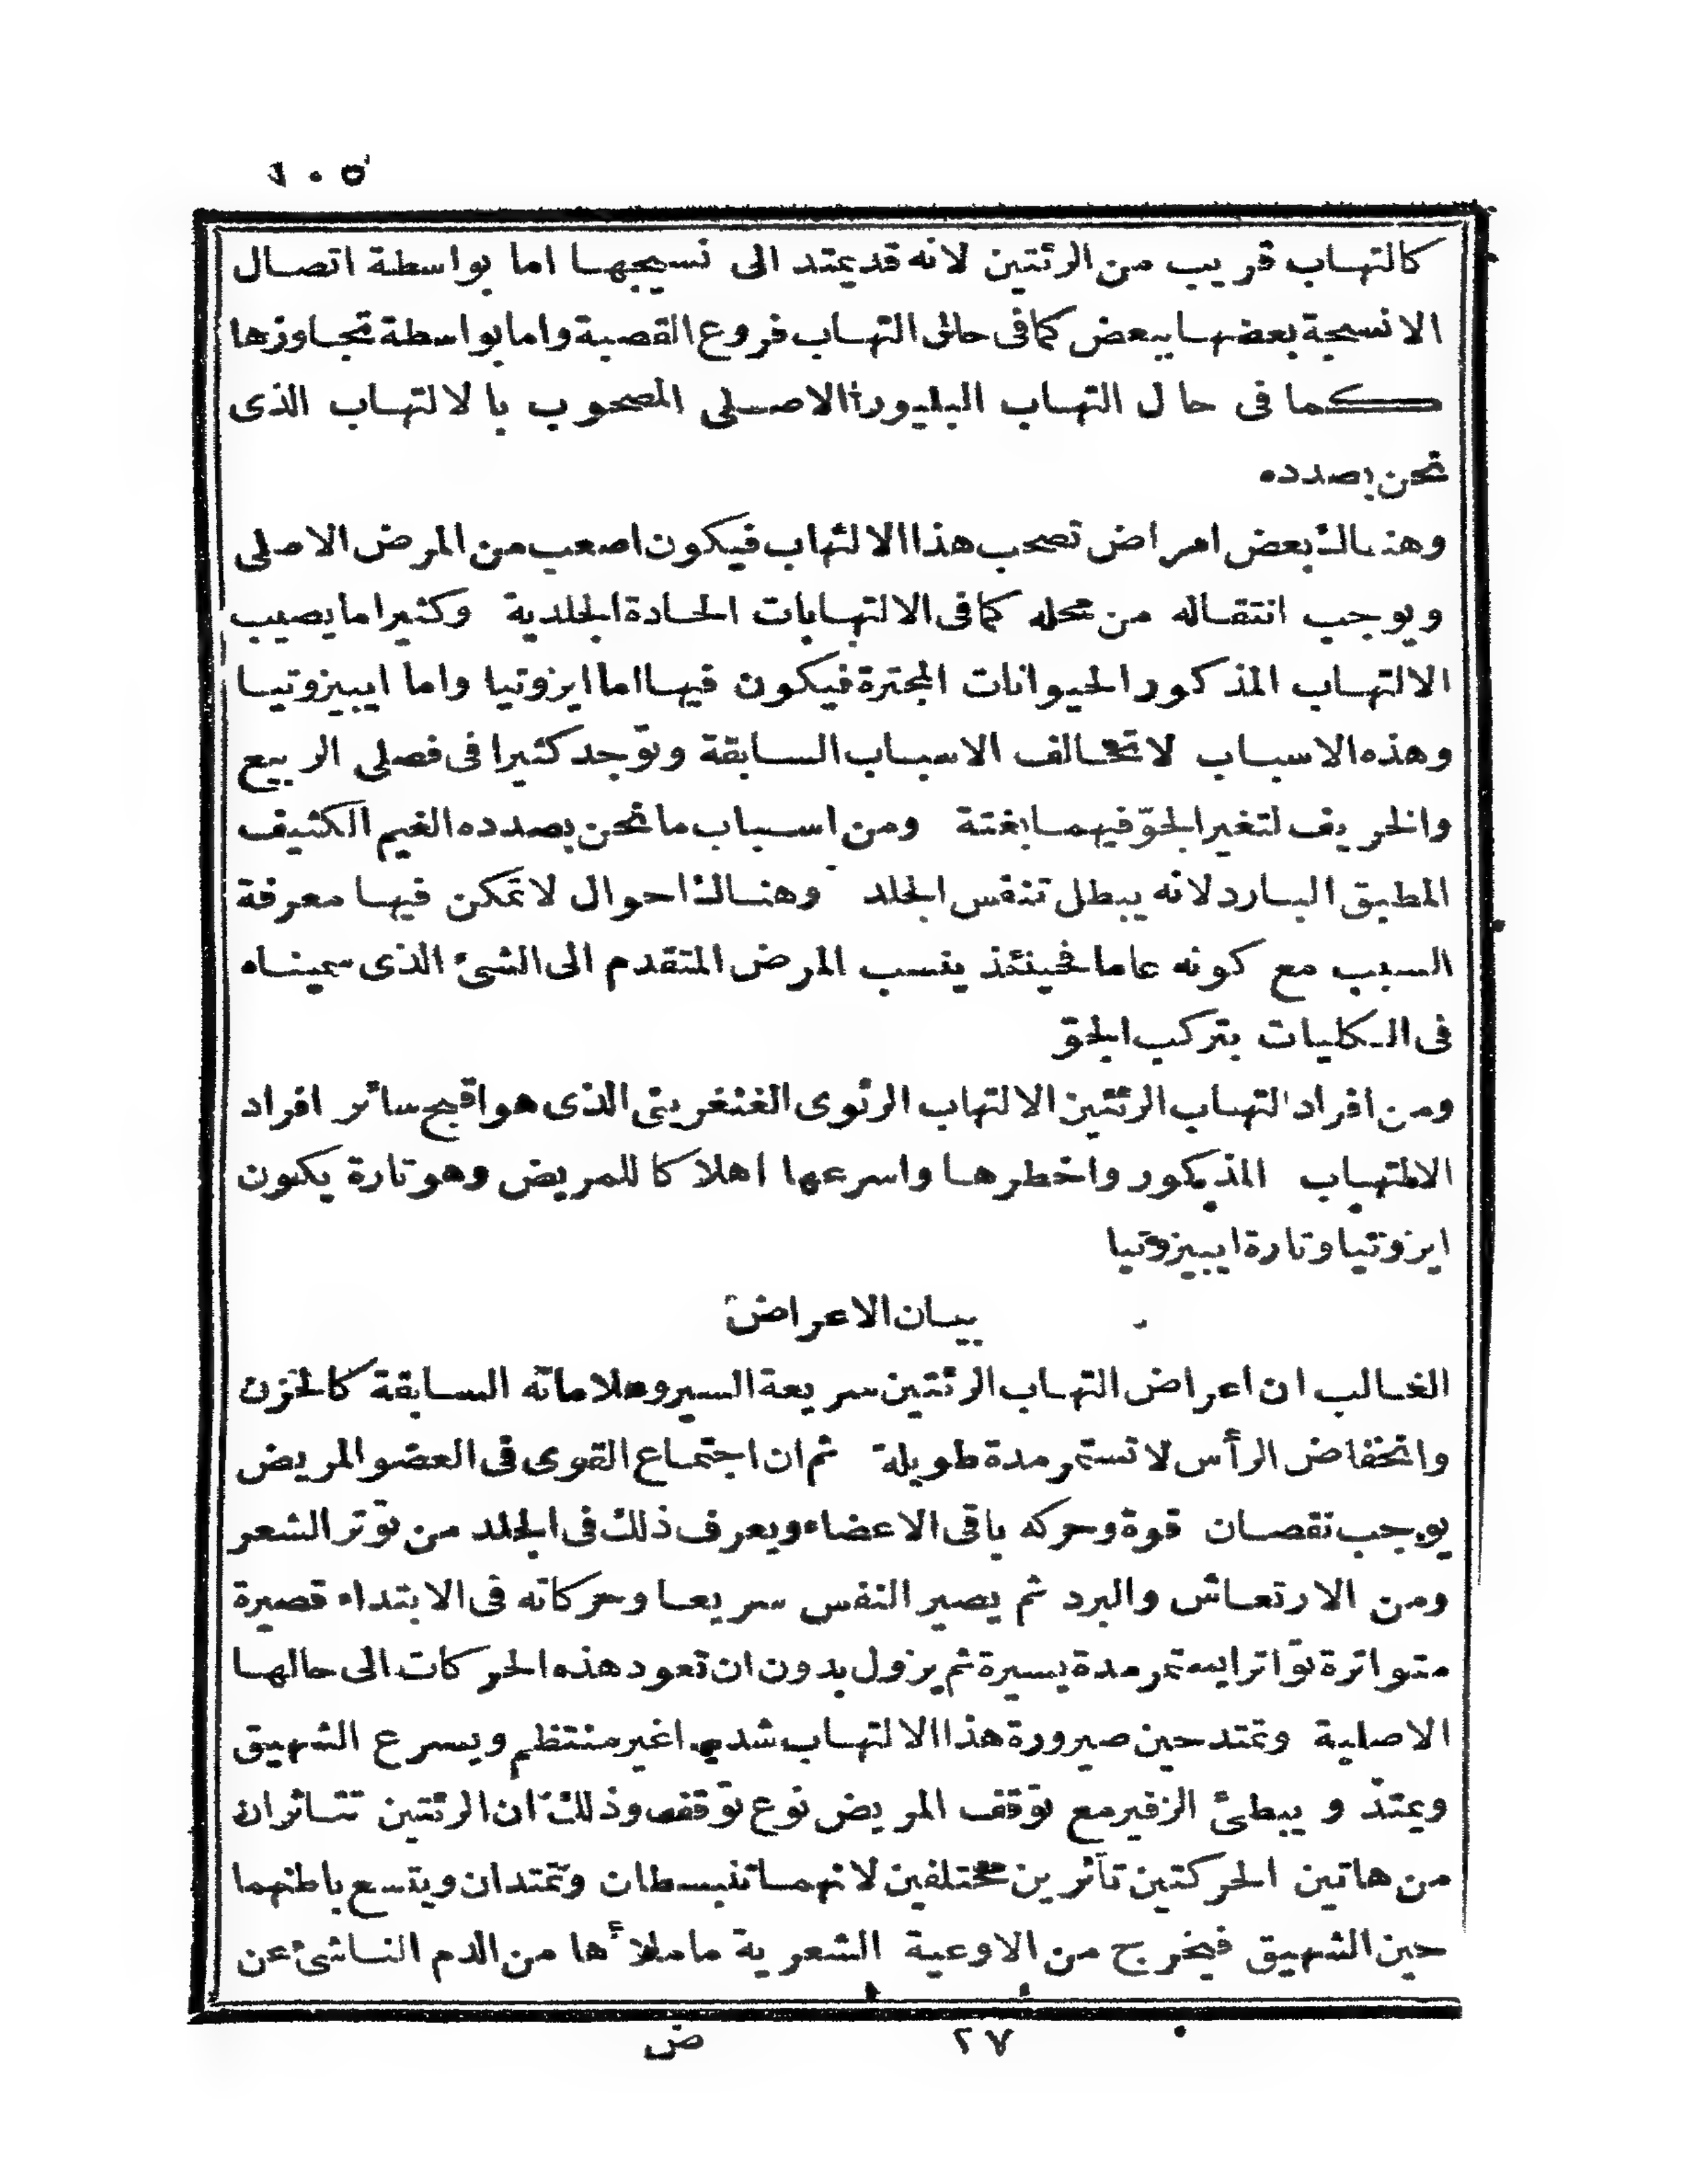 ١٠٥
كالتهاب قريب من الرئتين لانه قد يمتد الى نسيجها اما بواسطة اتصال
الانسجة بعضها ببعض كما فى حالتى التهاب فروع القصبة واما بواسطة تجاوزها
كما فى حال التهاب البليورا الاصلى المصحوب بالالتهاب الذى
نحن بصدده
وهنالك بعض امراض تصحب هذا الالتهاب فيكون اصعب من المرض الاصلى
ويوجب انتقاله من محله كما فى الالتهابات الحادة الجلدية وكثيرا ما يصيب
الالتهاب المذكور الحيوانات المجترة فيكون فيها اما ايزوتيا واما ايبيزوتيا
وهذه الاسباب لا تخالف الاسباب السابقة وتوجد كثيرا فى فصلى الربيع
والخريف لتغير الجوّ فيهما بغتة ومن اسباب ما نحن بصدده الغيم الكثيف
المطبق البارد لانه يبطل تنفس الجلد وهنالك احوال لا تمكن فيها معرفة
السبب مع كونه عاما فحينئذ ينسب المرض المتقدم الى الشئ الذى سميناه
فى الكليات بتركب الجوّ
ومن افراد التهاب الرئتين الالتهاب الرئوى الغنغرينى الذى هو اقبح سائر افراد
الالتهاب المذكور واخطرها واسرعها اهلاكا للمريض وهو تارة يكون
ايزوتيا وتارة ايبيزوتيا
بيان الاعراض
الغالب ان اعراض التهاب الرئتين سريعة السير وعلاماته السابقة كالحزن
وانخفاض الرأس لا تستمر مدة طويلة ثم ان اجتماع القوى فى العضو المريض
يوجب نقصان قوة وحركه باقى الاعضاء ويعرف ذلك فى الجلد من توتر الشعر
ومن الارتعاش والبرد ثم يصير النفس سريعا وحركاته فى الابتداء قصيرة
متواترة تواترا يستمر مدة يسيرة ثم يزول بدون ان تعود هذه الحركات الى حالها
الاصلية وتمتد حين صيرورة هذا الالتهاب شديدا غير منتظم ويسرع الشهيق
ويمتدّ و يبطئ الزفير مع توقف المريض نوع توقف وذلك ان الرئتين تتاثران
من هاتين الحركتين تأثرين مختلفين لانهما تنبسطان وتمتدان ويتسع باطنهما
حين الشهيق فيخرج من الاوعية الشعرية ما ملأها من الدم الناشئ عن
٢٧ ض